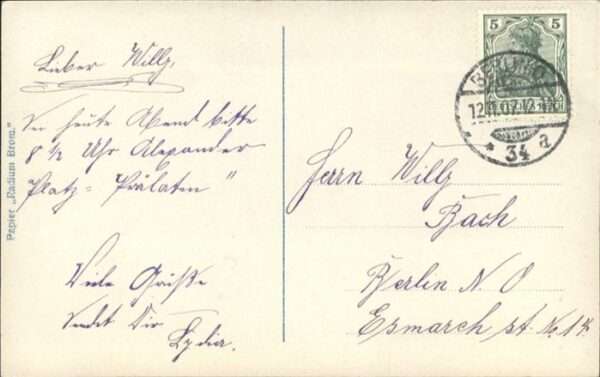 Lieber Willy,
Sei heute Abend bitte
8 1/2 Uhr Alexander
Platz = Prälaten"
Viele Grüße
sendet Dir
Lydia.
Papier „Radium Brom."
5 5
BERLIN NO
12.11.07.12
34 a
Herrn Willy
Bach
Berlin N. O
Esmarch st. No.